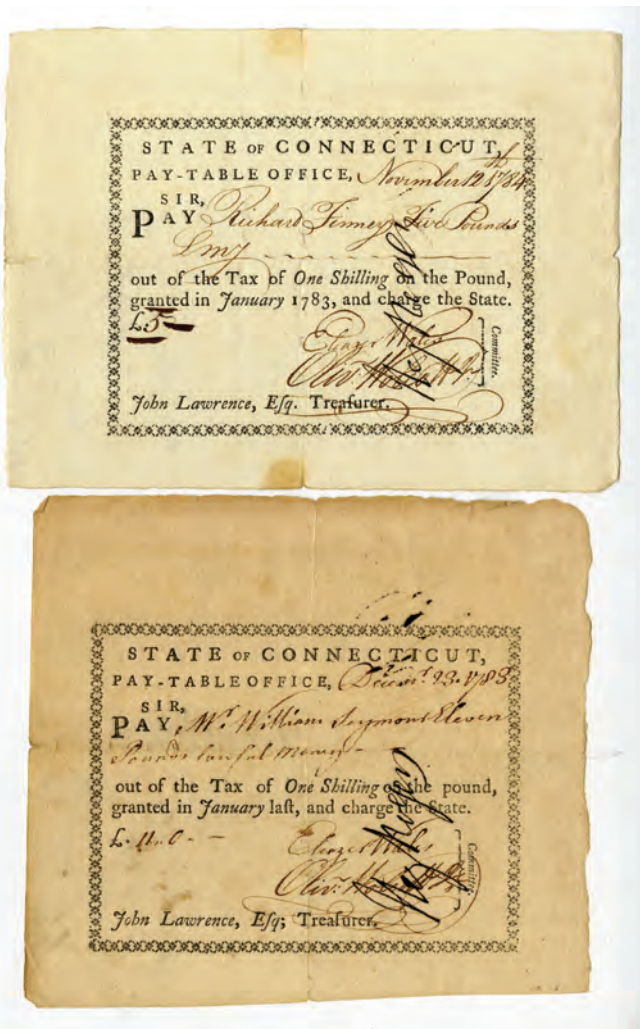 STATE OF CONNECTICUT,
PAY-TABLE OFFICE, November 12th 1784
SIR,
PAY Richard Finney Five Pounds
Lmy
out of the Tax of One Shilling on the Pound,
granted in January 1783, and charge the State.
£5
Eleazr Wales
Olivr Wolcott Jr
Committee.
John Lawrence, Esq. Treaſurer.
STATE OF CONNECTICUT,
PAY-TABLE OFFICE, Decemr. 23. 1783
SIR,
PAY Mr. William Seymour Eleven
Pounds lawful money
out of the Tax of One Shilling on the pound,
granted in January laſt, and charge the State.
£. 11. 0
Eleazr Wales
Olivr Wolcott Jr
Committee.
John Lawrence, Eſq; Treaſurer.